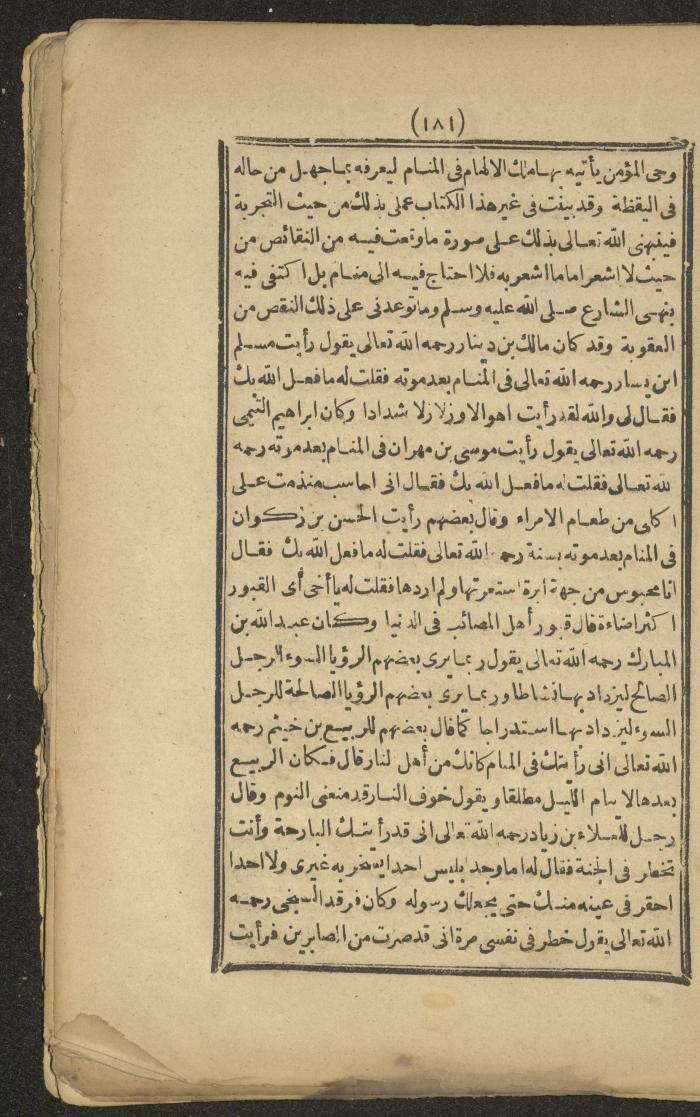 (١٨١)
وحى المؤمن يأتيه بها ملك الالهام فى المنام ليعرفه بما جهل من حاله
فى اليقظة وقد بينت فى غير هذا الكتاب عملى بذلك من حيث التجربة
فيفهنى الله تعالى بذلك على صورة ما وقعت فيه من النقائص من
حيث لا اشعر اما ما اشعر به فلا احتاج فيه الى منام بل اكتفى فيه
بنهى الشارع صلى الله عليه وسلم وما توعدنى على ذلك النقص من
العقوبة وقد كان مالك بن دينار رحمه الله تعالى يقول رأيت مسلم
ابن يسار رحمه الله تعالى فى المنام بعد موته فقلت له ما فعل الله بك
فقال لى والله لقد رأيت اهوالا وزلازلا شدادا وكان ابراهيم التيمى
رحمه الله تعالى يقول رأيت موسى بن مهران فى المنام بعد موته رحمه
لله تعالى فقلت له ما فعل الله بك فقال انى احاسب منذ مت على
اكلى من طعام الامراء وقال بعضهم رأيت الحسن بن ذكوان
فى المنام بعد موته بسنة رحمه الله تعالى فقلت له ما فعل الله بك فقال
انا محبوس من جهة ابرة استعرتها ولم اردها فقلت له يا أخى أى القبور
اكثر اضاءة قال قبور أهل المصائب فى الدنيا وكان عبد الله بن
المبارك رحمه الله تعالى يقول ربما يرى بعضهم الرؤيا السوء للرجل
الصالح ليزداد بها نشاطا وربما يرى بعضهم الرؤيا الصالحة للرجل
السوء ليزداد بها استدراجا كما قال بعضهم للربيع بن خيثم رحمه
الله تعالى انى رأيتك فى المنام كانك من أهل لنار قال فكان الربيع
بعدها لا ينام الليل مطلقا ويقول خوف النار قد منعنى النوم وقال
رجل للعلاء بن زياد رحمه الله تعالى انى قد رأيتك البارحة وأنت
تخطر فى الجنة فقال له اما وجد ابليس احدا يسخر به غيرى ولا احدا
احقر فى عينه منك حتى يجعلك رسوله وكان فرقد السبخى رحمه
الله تعالى يقول خطر فى نفسى مرة انى قد صرت من الصابرين فرأيت